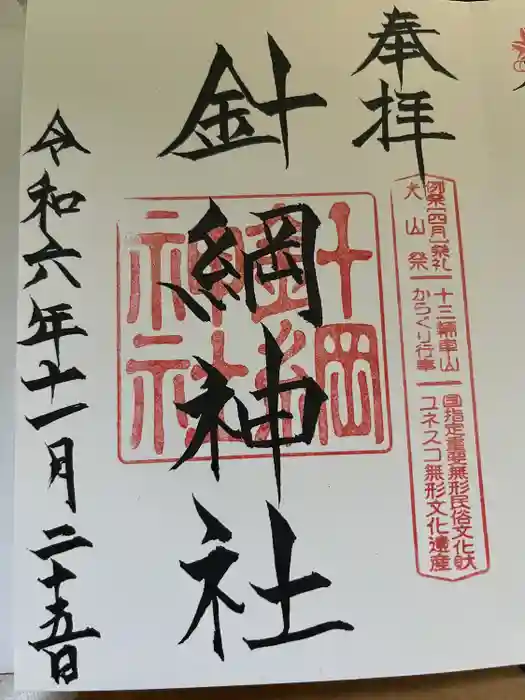 奉拝
例祭(四月)祭礼 十三輛車山 国指定重要無形民俗文化財
犬山祭 からくり行事 ユネスコ無形文化遺産
針綱神社
針綱
神社
令和六年十一月二十五日